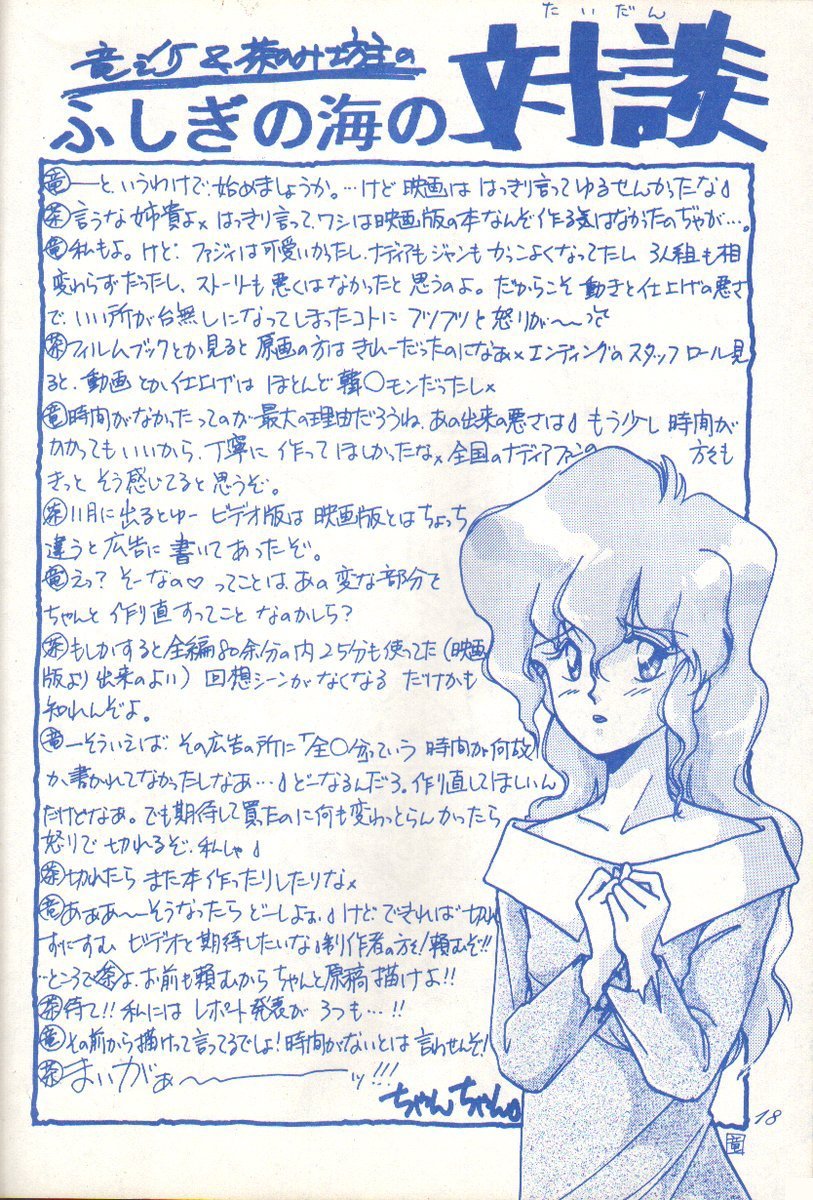 たいだん
竜之介&茶のみ坊主の
ふしぎの海の対談
竜―と、いうわけで、始めましょうか。…けど映画は はっきり言ってゆるせんかったな♪
茶言うな姉貴よ× はっきり言って、ワシは映画版の本なんぞ作る気はなかったのぢゃが…。
竜私もよ。けど、ファジィは可愛いかったし、ナディアもジャンもかっこよくなってたし、3人組も相
変わらずだったし、ストーリーも悪くはなかったと思うのよ。だからこそ動きと仕上げの悪さ
で、いい所が台無しになってしまったコトにブツブツと怒りが〜〜
茶フィルムブックとか見ると原画の方はきれーだったのになぁ× エンディングのスタッフロール見
ると、動画とか仕上げは ほとんど韓○モンだったし×
竜時間がなかったってのが最大の理由だろうね、あの出来の悪さは♪ もう少し時間が
かかってもいいから、丁寧に作ってほしかったな× 全国のナディアファンの 方々も
きっと そう感じてると思うぞ。
茶11月に出るとゆー ビデオ版は 映画版とはちょっち
違うと広告に書いてあったぞ。
竜えっ? そーなの♡ ってことは、あの変な部分を
ちゃんと作り直すってこと なのかしら?
茶もしかすると全編80余分の内25分も使ってた(映画
版より出来のよい) 回想シーンがなくなる だけかも
知れんぞよ。
竜―そういえば、その広告の所に「全○分」っていう時間が何故
か、書かれてなかったしなぁ…♪ どーなるんだろ。作り直してほしいん
だけどなぁ。でも期待して買ったのに何も変わっとらんかったら
怒りで切れるぞ、私しゃ♪
茶切れたら また本作ったりしたりな×
竜あぁあ〜〜そうなったら どーしよぉ♪ けど できれば切れ
ずにすむ ビデオを期待したいな♪ 制作者の方々! 頼むぞ!!
…ところで茶よ、お前も頼むからちゃんと原稿描けよ!!
茶待て!! 私には レポート発表が 3つも…!!
竜その前から描けって言ってるでしょ! 時間がないとは言わせんぞ!
茶まいがぁ〜〜ッ!!!
ちゃんちゃん♪
18
竜